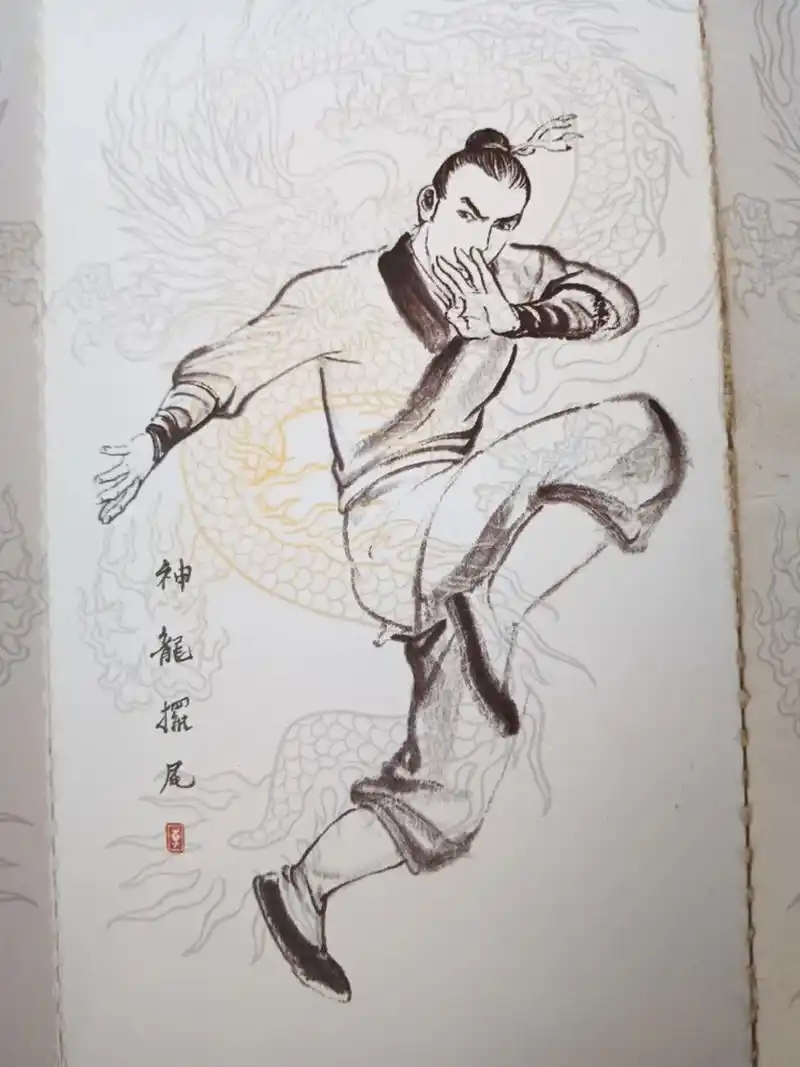 神龍擺尾